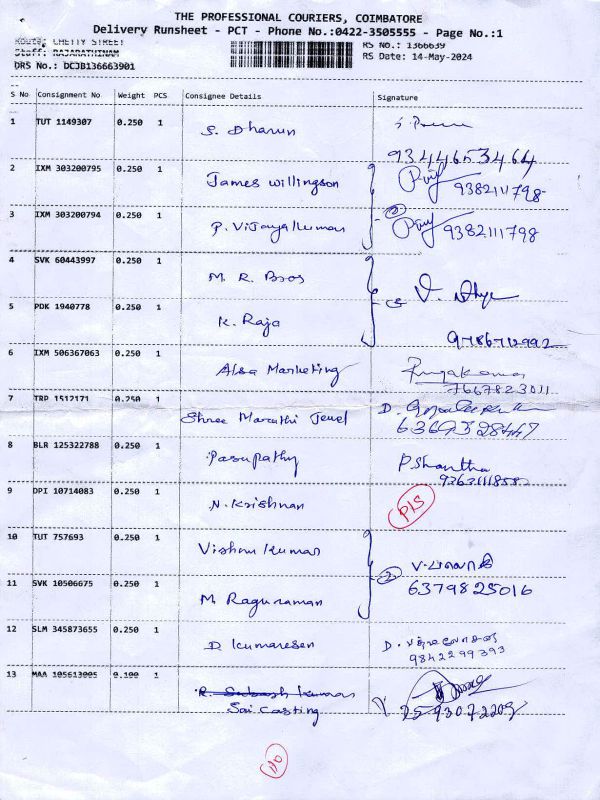 THE PROFESSIONAL COURIERS, COIMBATORE
Delivery Runsheet - PCT - Phone No.:0422-3505555 - Page No.:1
Route: CHETTY STREET
Staff: RAJARATHINAM
DRS No.: DCJB136663901
RS No.: 1366639
RS Date: 14-May-2024
S No Consignment No Weight PCS Consignee Details Signature
1 TUT 1149307 0.250 1 S. Dharun
9344653464
2 IXM 303200795 0.250 1 James Willingson 9382111798
3 IXM 303200794 0.250 1 P. Vijayakumar 9382111798
4 SVK 60443997 0.250 1 M. R. Bros
5 PDK 1940778 0.250 1 K. Raja
6 IXM 506367063 0.250 1 Alsa Marketing
7667823011
7 TRP 1512171 0.250 1 Shree Maruthi Jewel D.
6369328447
8 BLR 125322788 0.250 1 Pasupathy P Shantha
9 DPI 10714083 0.250 1 N. Krishnan
10 TUT 757693 0.250 1 Vishnu Kumar
11 SVK 10506675 0.250 1 M. Raguraman 6379825016
12 SLM 345873655 0.250 1 D. Kumaresen D.
9842299393
13 MAA 105613005 0.100 1 R. Subash Kumar
Sai Casting